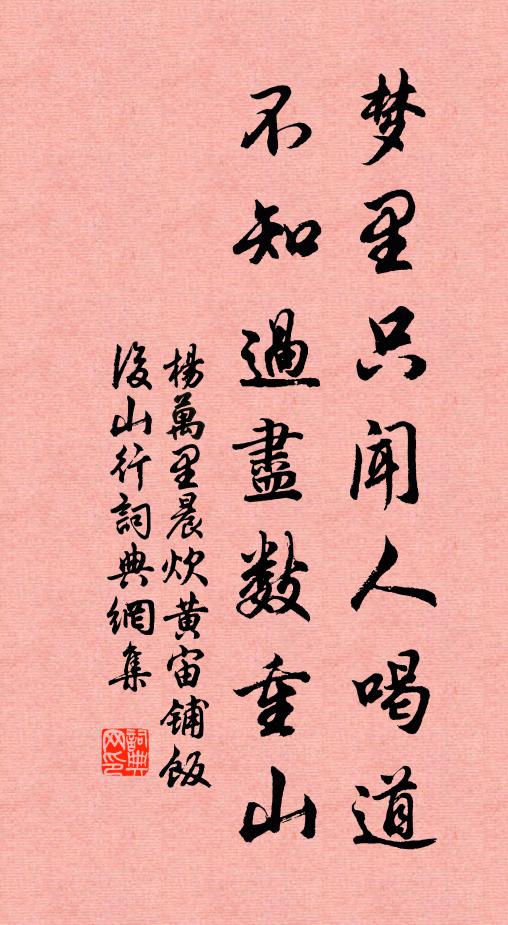 梦里只闻人喝道
不知過盡數重山
楊萬里晨炊黄宙鋪飯
後山行詞典網集
詞典
网印